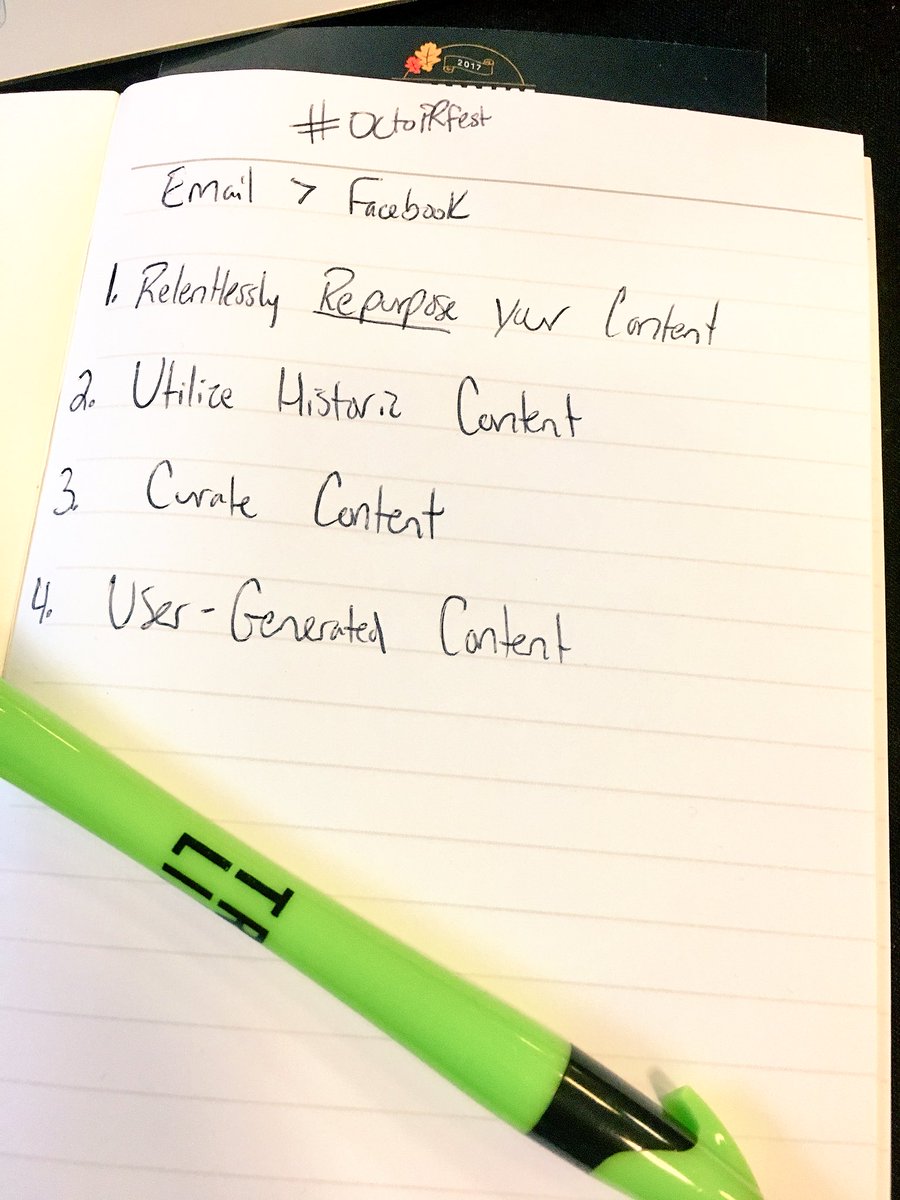 2017
#OctoiRfest
Email > Facebook
1. Relentlessly Repurpose your Content
2. Utilize Historic Content
3. Curate Content
4. User-Generated Content